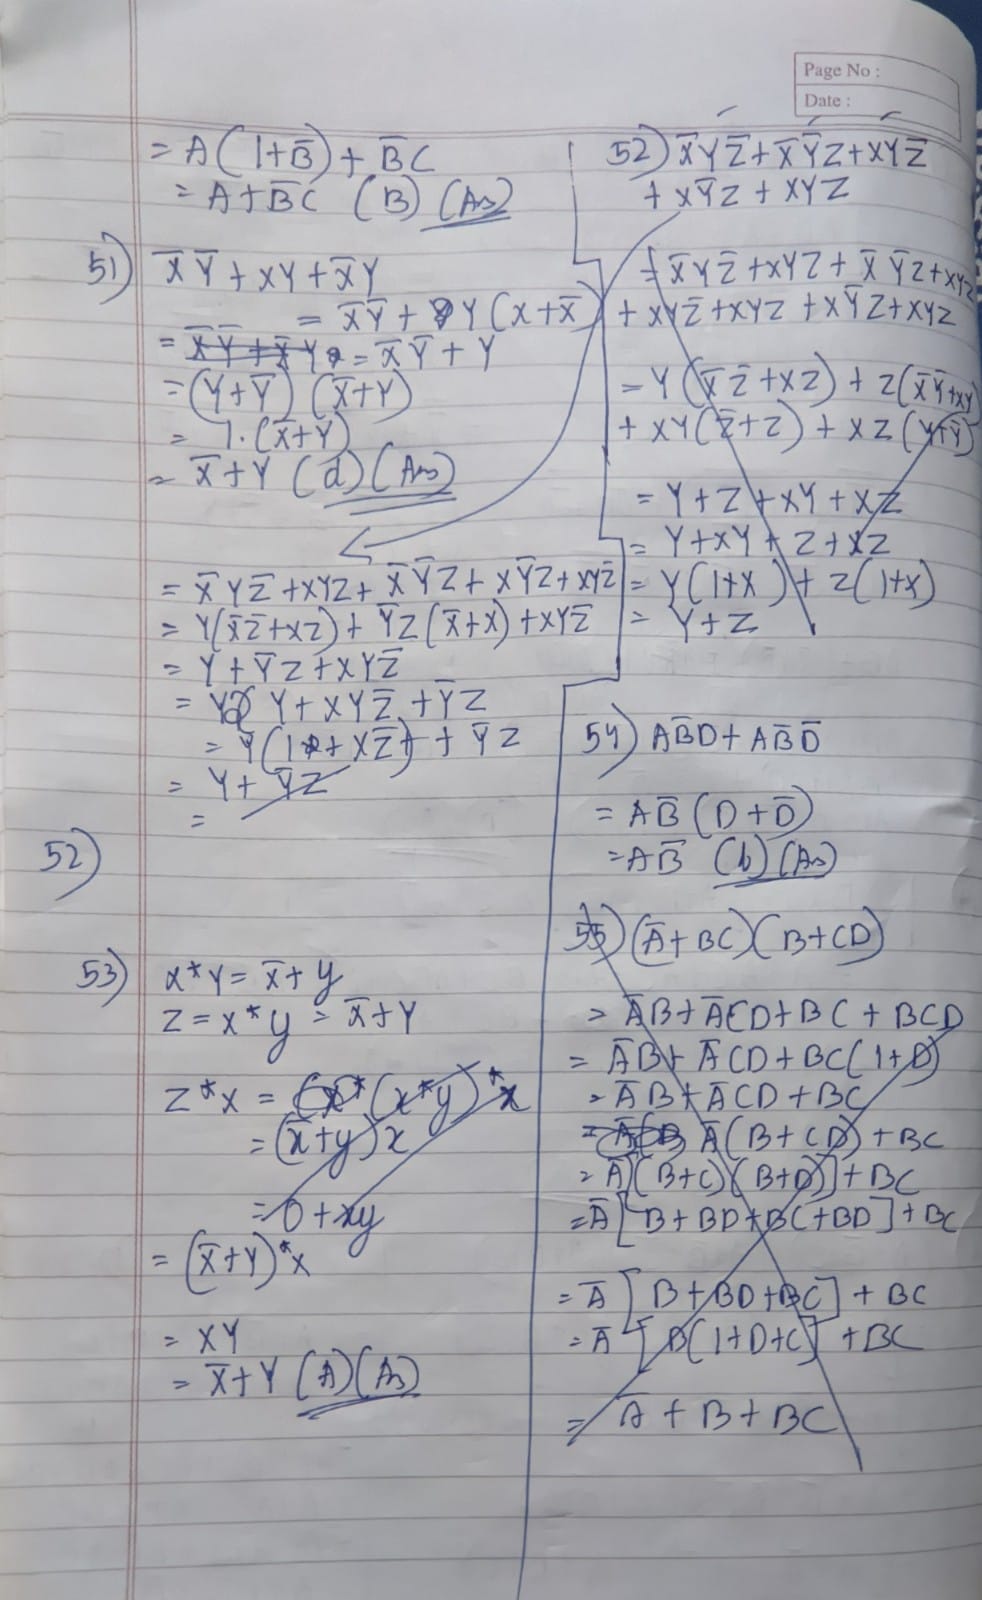 Page No :
Date :
= A(1+B̅) + B̅C
= A+B̅C (B) (Ans)
51) X̅ Y̅ + XY + X̅Y
= X̅Y̅ + Y(X+X̅)
= X̅Y̅ + X̅Y = X̅Y̅ + Y
= (Y+Y̅) (X̅+Y)
= 1.(X̅+Y)
= X̅+Y (d) (Ans)
= X̅YZ̅ + XYZ + X̅Y̅Z + XY̅Z + XYZ̅
= Y(X̅Z̅+XZ) + Y̅Z(X̅+X) + XYZ̅
= Y + Y̅Z + XYZ̅
= Y + XYZ̅ + Y̅Z
= Y(1+XZ̅) + Y̅Z
= Y + Y̅Z
=
52)
53) x*Y = x̅+y
Z = x*y = X̅+Y
Z*X = (x*y)*x
= (x̅+y)x
= 0+xy
= (X̅+Y)*X
= XY
= X̅+Y (A) (Ans)
52) X̅YZ̅+X̅Y̅Z+XYZ̅
+ XY̅Z + XYZ
= X̅YZ̅+XYZ + X̅Y̅Z+XYZ
+ XYZ̅+XYZ + XY̅Z+XYZ
= Y(X̅Z̅+XZ) + Z(X̅Y̅+XY)
+ XY(Z̅+Z) + XZ(Y+Y̅)
= Y+Z+XY+XZ
= Y+XY+Z+XZ
= Y(1+X) + Z(1+X)
= Y+Z
54) AB̅D+AB̅D̅
= AB̅(D+D̅)
= AB̅ (b) (Ans)
55) (A̅+BC)(B+CD)
= A̅B+A̅CD+BC+BCD
= A̅B+A̅CD+BC(1+D)
= A̅B+A̅CD+BC
= A̅(B+CD)+BC
= A̅[(B+C)(B+D)]+BC
= A̅[B+BD+BC+BD]+BC
= A̅[B+BD+BC]+BC
= A̅[B(1+D+C]+BC
= A̅+B+BC